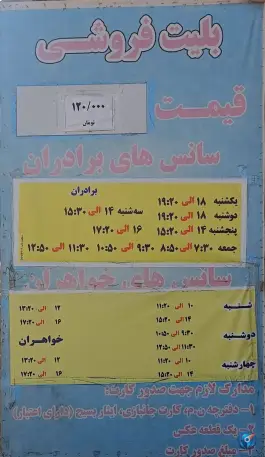 بلیت فروشی
قیمت
۱۲۰/۰۰۰
تومان
سانس های برادران
برادران
یکشنبه ۱۸ الی ۱۹:۲۰
دوشنبه ۱۸ الی ۱۹:۲۰
سه شنبه ۱۴ الی ۱۵:۳۰
پنجشنبه ۱۴ الی ۱۵:۲۰
۱۶ الی ۱۷:۲۰
جمعه ۷:۳۰ الی ۸:۵۰
۹:۳۰ الی ۱۰:۵۰
۱۱:۳۰ الی ۱۲:۵۰
سانس های خواهران
شنبه
۱۰ الی ۱۱:۲۰
۱۲ الی ۱۳:۲۰
۱۴ الی ۱۵:۲۰
۱۶ الی ۱۷:۲۰
دوشنبه
۹:۳۰ الی ۱۰:۵۰
۱۱:۳۰ الی ۱۲:۵۰
خواهران
چهارشنبه
۱۰ الی ۱۱:۲۰
۱۲ الی ۱۳:۲۰
۱۴ الی ۱۵:۲۰
۱۶ الی ۱۷:۲۰
مدارک لازم جهت صدور کارت:
۱- دفترچه ن.م، کارت جانبازی، ایثار بسیج (دارای اعتبار)
۲- یک قطعه عکس
مبلغ صدور کارت